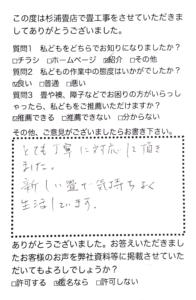 この度は杉浦畳店で畳工事をさせていただきま
してありがとうございました。
質問1 私どもをどちらでお知りになりましたか?
□チラシ □ホームページ ☑紹介 □その他
質問2 私どもの作業中の態度はいかがでしたか?
☑良い □普通 □悪い
質問3 畳や襖、障子などでお困りの方がいらっし
ゃったら、私どもをご推薦いただけますか?
☑推薦できる □推薦できない □分からない
その他、ご意見がございましたらお書き下さい。
とても丁寧に対応して頂き
ました。
新しい畳で気持ちよく
生活しています。
ありがとうございました。お答えいただきまし
たお客様のお声を弊社資料等に掲載させていた
だいてもよろしでしょうか?
□許可する ☑匿名なら □許可しない